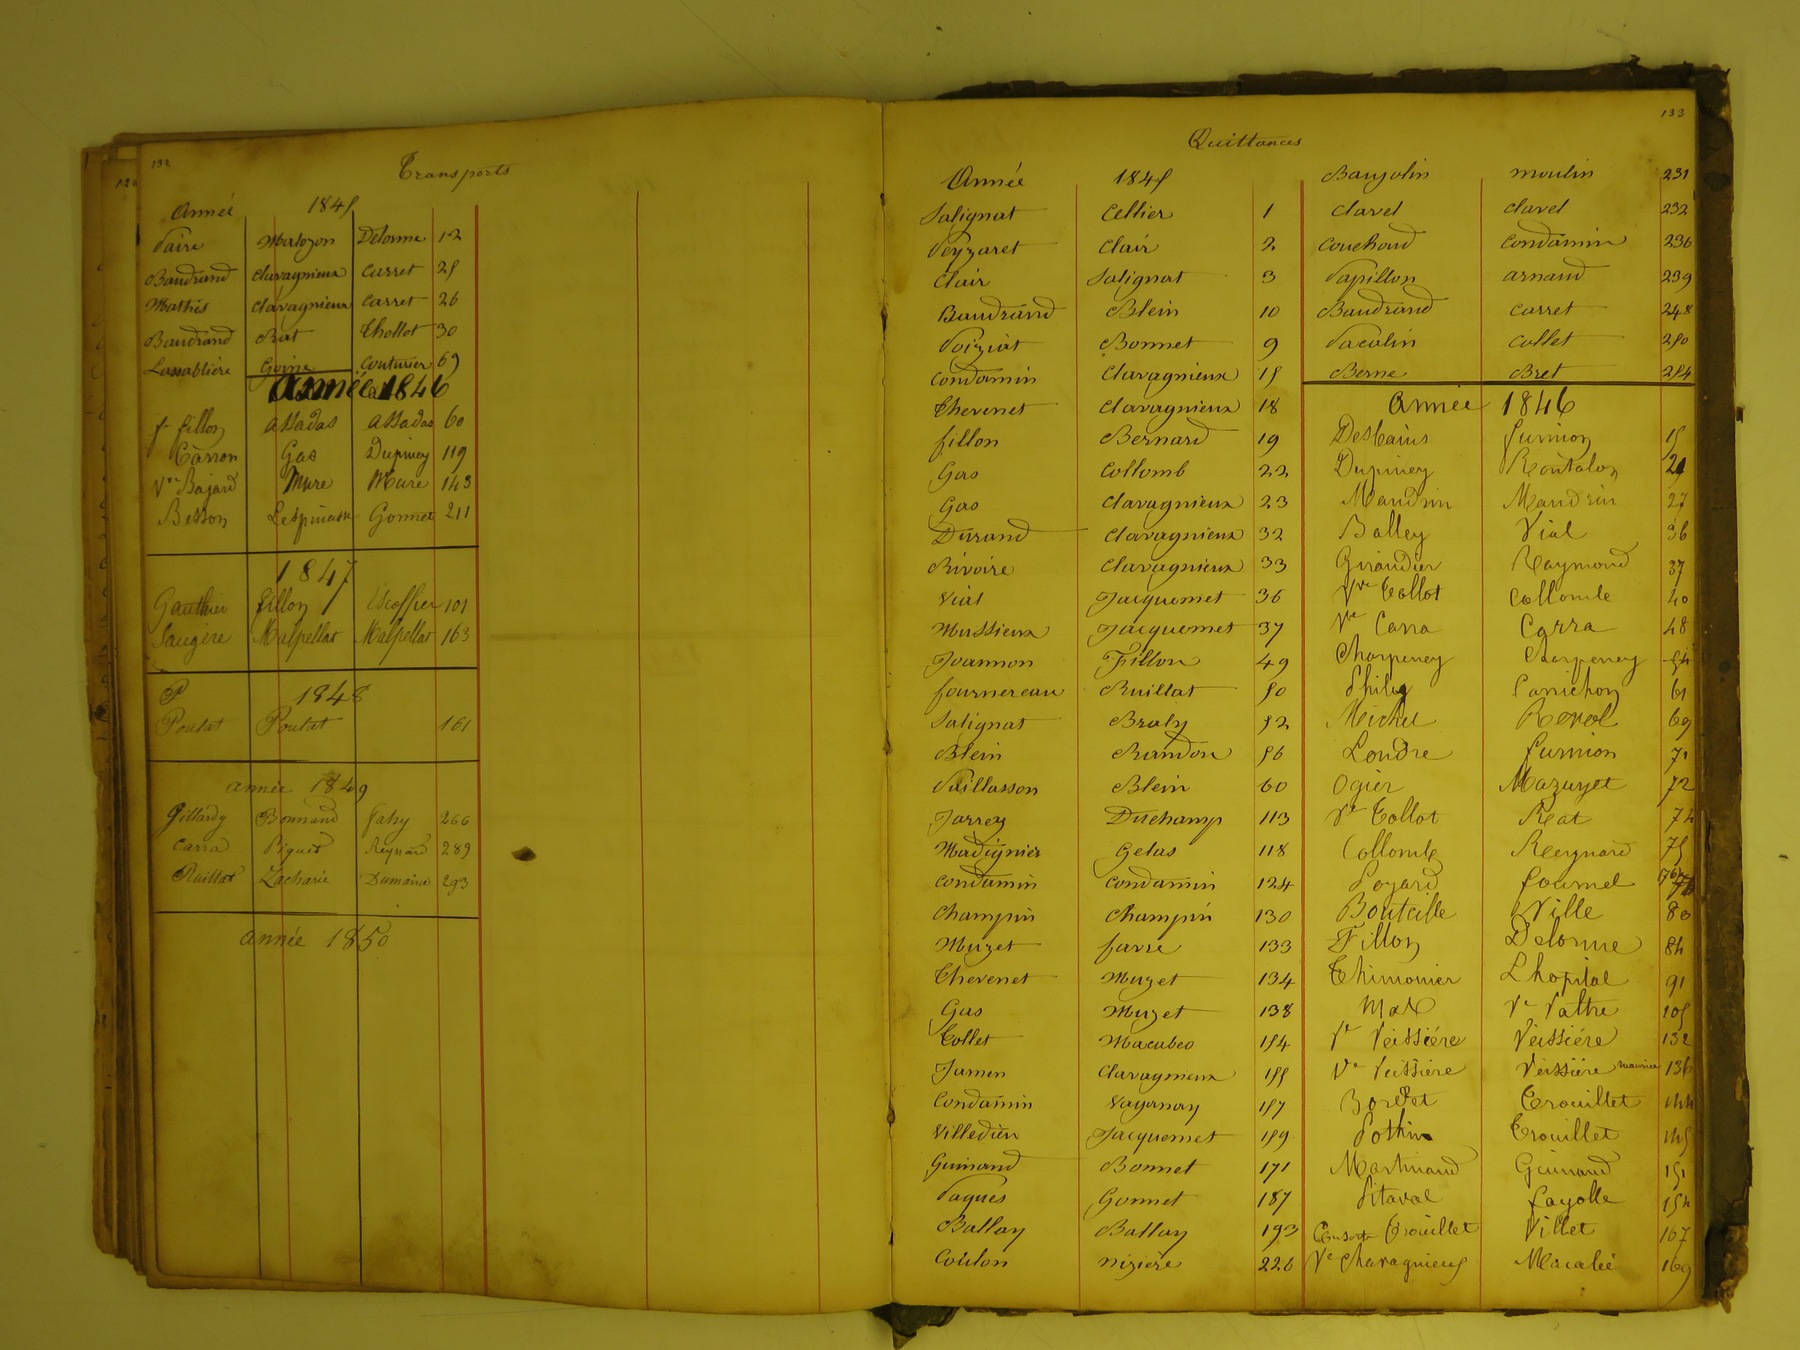 132
Transports
Année 1845
Paire Malozon Delorme 12
Baudrand Clavagnieux Carret 25
Mathis Clavagnieux Carret 26
Baudrand Rat Thollot 30
Lassablière Goine Couturier 69
Année 1846
fillon assadas assadas 60
Carron Gas Dupiney 119
Vve Bajard Mure Mure 143
Besson Lespinasse Gonnet 211
1847
Gauthier fillon Escoffier 101
Saugère Malpellat Malpellat 163
P 1848
Poulat Poulat 161
année 1849
Gillardy Bonnand faby 266
Carra Piquet Reynard 289
Ruillat Zacharie Dumaine 293
année 1850
133
Quittances
Année 1845
Salignat Cellier 1
Peyzaret Clair 2
Clair Salignat 3
Baudrand Blein 10
Poiziat Bonnet 9
Condamin Clavagnieux 15
Thevenet Clavagnieux 18
fillon Bernard 19
Gas Collomb 22
Gas Clavagnieux 23
Durand Clavagnieux 32
Rivoire Clavagnieux 33
Vial Jacquemet 36
Mussieux Jacquemet 37
Joannon Fillon 49
fournereau Ruillat 50
Salignat Braly 52
Blein Randon 56
Paillasson Blein 60
Jarrey Duchamp 113
Madignier Gelas 118
Condamin Condamin 124
Champin Champin 130
Muzet favre 133
Thevenet Muzet 134
Gas Muzet 138
Collet Macabeo 154
Jamen Clavagnieux 155
Condamin Vaganay 157
Villedieu Jacquemet 159
Guinand Bonnet 171
Paques Gonnet 187
Ballay Ballay 193
Coulon nizière 226
Baujolin moulin 231
Clavel Clavel 232
Couchoud Condamin 236
Papillon arnaud 239
Baudrand Carret 248
Pacalin Collet 250
Berne Bret 254
Année 1846
Desbains furnion 15
Dupiney Rontalon 21
Mandrin Mandrin 27
Balley Vial 36
Giraudier Raymond 37
Vve Collot Collomb 40
Ve Carra Carra 48
Charpeney Charpeney 54
Philip Panichon 61
Michel Revol 69
Londre furnion 71
Ogier Mazuyet 72
Ve Collot Rat 74
Collomb Reynard 75
Poyard fournel 76
Bouteille Ville 80
Fillon Delorme 84
Thimonier Lhopital 91
Max Ve Vattre 105
Ve Veissière Veissière 132
Ve Veissière Veissière maurice 136
Bordet Trouillet 144
Pothin Trouillet 145
Martinand Guinand 151
Pitaval fayolle 154
Consorts Trouillet Villet 167
Ve Chavagnieux Macabé 169